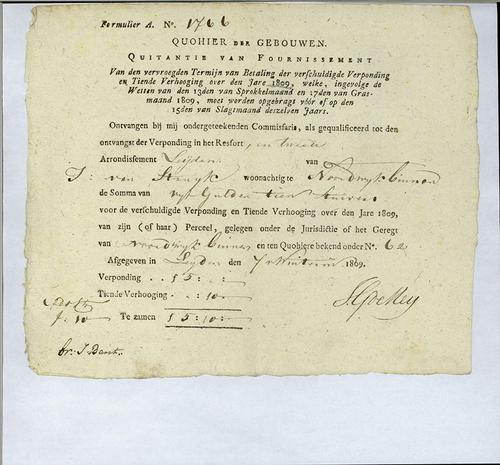 Formulier A. No. 1766
QUOHIER DER GEBOUWEN.
QUITANTIE VAN FOURNISSEMENT
Van den vervroegden Termijn van Betaling der verschuldigde Verponding
en Tiende Verhooging over den Jare 1809, welke, ingevolge de
Wetten van den 13den van Sprokkelmaand en 17den van Gras-
maand 1809, moet worden opgebragt vóór of op den
15den van Slagtmaand deszelven Jaars.
Ontvangen bij mij ondergeteekenden Commissaris, als gequalificeerd tot den
ontvangst der Verponding in het Ressort, en tweede
Arrondissement Leyden van
J: van Struyk woonachtig te Noordwyk binnen
de Somma van vyf Gulden tien Stuivers
voor de verschuldigde Verponding en Tiende Verhooging over den Jare 1809,
van zijn (of haar) Perceel, gelegen onder de Jurisdictie of het Geregt
van Noordwyk binnen en ten Quohiere bekend onder No. 62
Afgegeven in Leyden den 1809.
Verponding ƒ 5:
Tiende Verhooging :10:
ƒ. 10 Te zamen ƒ 5:10: